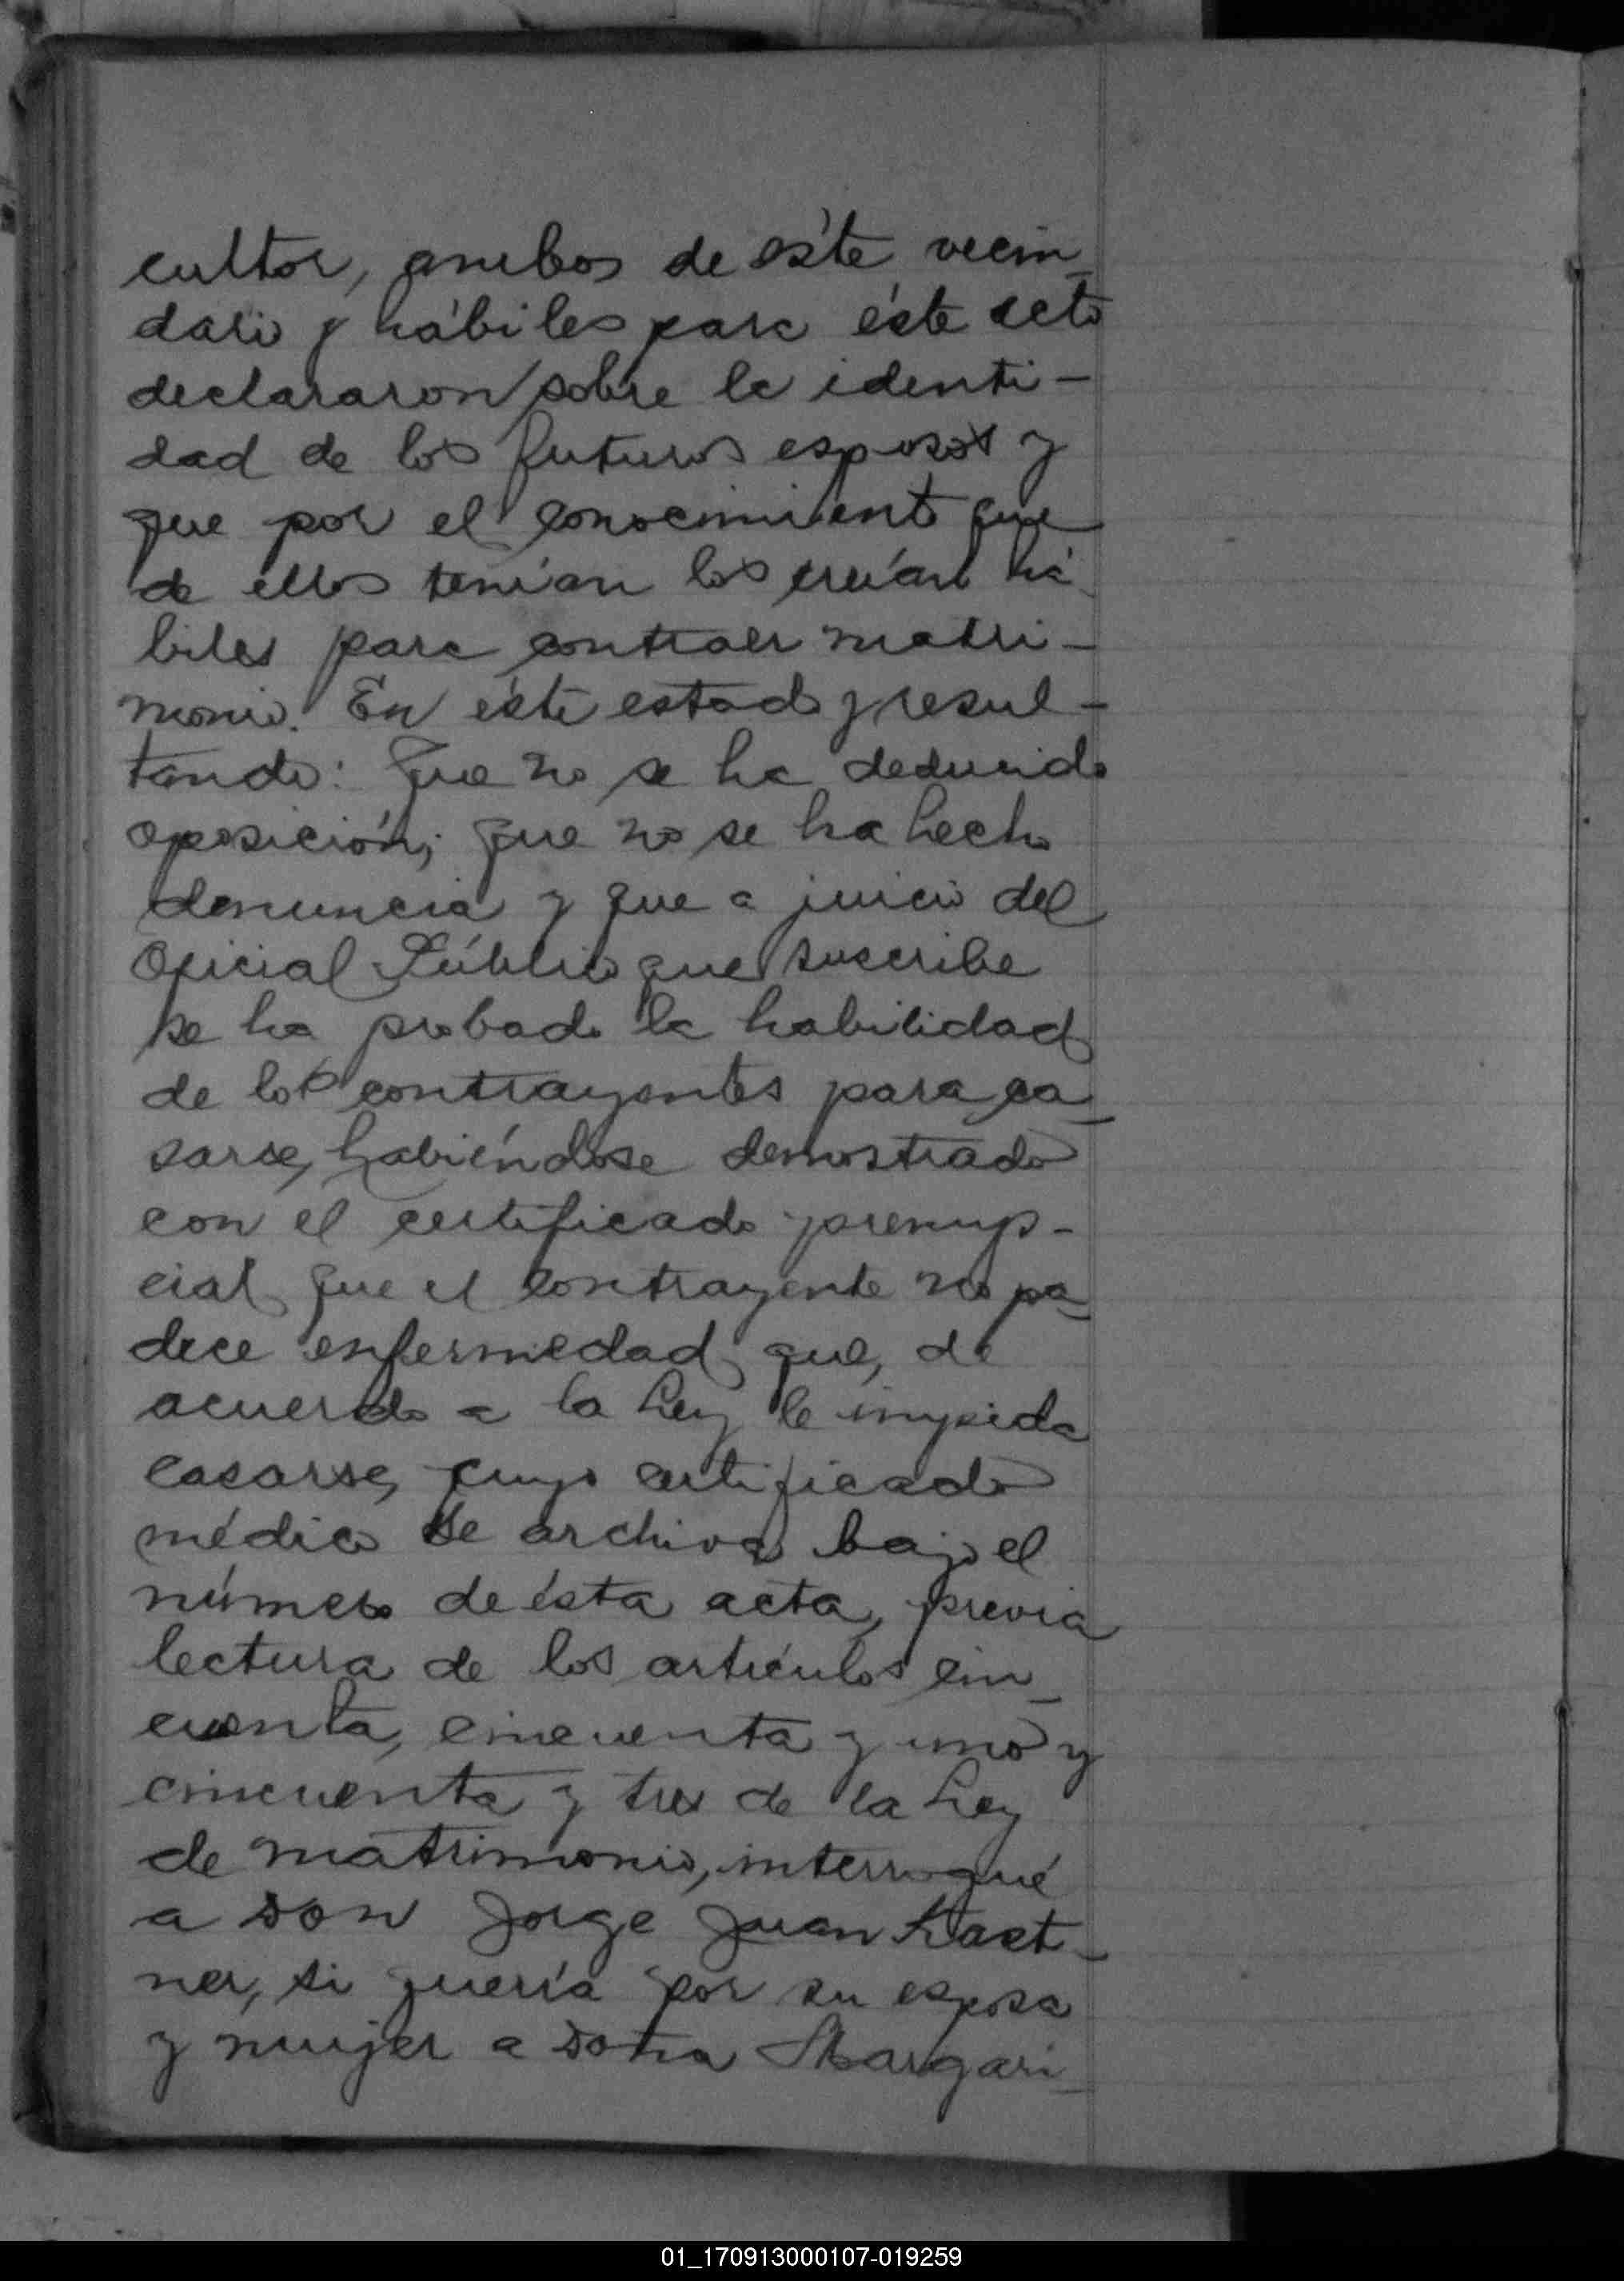 cultor, ambos de éste vecin-
dario y hábiles para éste acto
declararon sobre la identi-
dad de los futuros esposos y
que por el conocimiento que
de ellos tenían los creían há-
biles para contraer matri-
monio. En éste estado y resul-
tando: Que no se ha deducido
oposición; que no se ha hecho
denuncia y que a juicio del
Oficial Público que suscribe
se ha probado la habilidad
de los contrayentes para ca-
sarse, habiéndose demostrado
con el certificado prenup-
cial que el contrayente no pa-
dece enfermedad que, de
acuerdo a la Ley le impida
casarse, cuyo certificado
médico se archiva bajo el
número de ésta acta, previa
lectura de los artículos cin-
cuenta, cincuenta y uno y
cincuenta y tres de la Ley
de matrimonio, interrogué
a Don Jorge Juan Kast-
ner, si quería por su esposa
y mujer a Doña Margari-
01_170913000107-019259